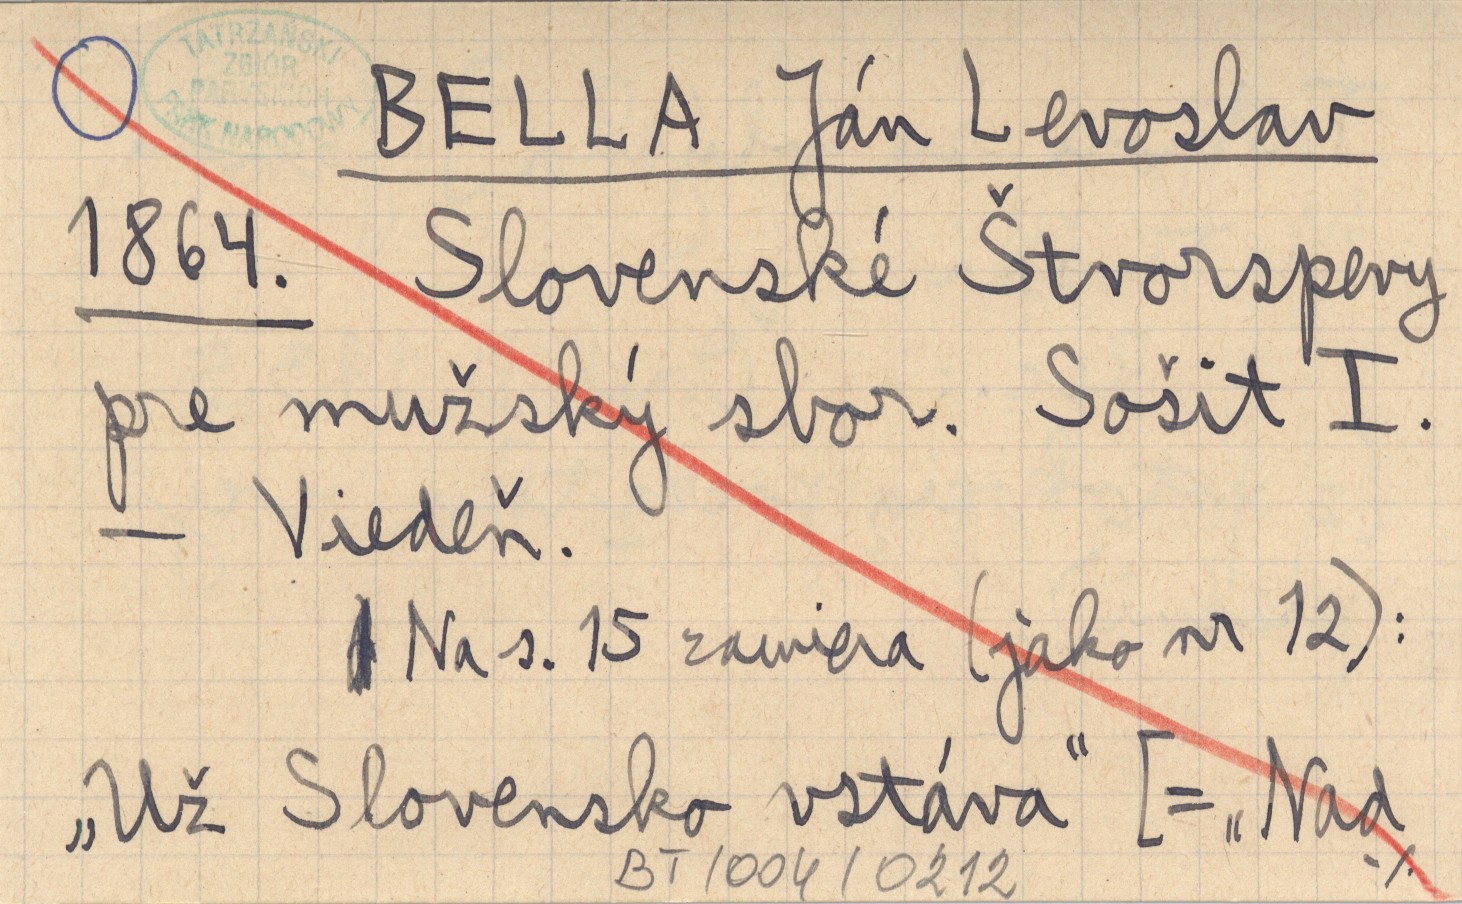 TATRZAŃSKI
ZBIÓR
PARYSKICH
PARK NARODOWY
BELLA Ján Levoslav
1864. Slovenské Štvorspevy
pre mužský sbor. Sošit I.
— Viedeň.
Na s. 15 zawiera (jako nr 12):
„Už Slovensko vstáva“ [= „Nad
-/.
BT/004/0212